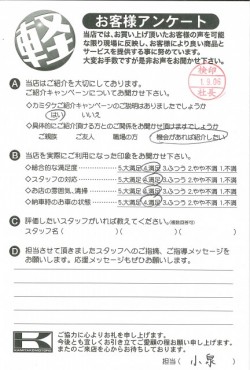 軽
お客様アンケート
当店では、お買い上げ頂いたお客様の声を可能
な限り現場に反映し、お客様により良い商品と
サービスを提供する事に努めています。
大変お手数ですが是非お声をお聞かせ下さい。
検印
1.9.06
社長
A 当店はご紹介を大切にしております。
ご紹介キャンペーンについてお聞かせ下さい。
◇カミタケご紹介キャンペーンのご説明はありましたでしょうか
はい いいえ
◇具体的にご紹介頂ける方とのご関係をお聞かせ頂けますでしょうか
ご親族 ご友人 職場の方 機会があれば紹介したい
B 当店を実際にご利用になった印象をお聞かせ下さい。
◇総合的な満足度 5.大満足 4.満足 3.ふつう 2.やや不満 1.不満
◇スタッフの対応 5.大満足 4.満足 3.ふつう 2.やや不満 1.不満
◇お店の雰囲気、清掃 5.大満足 4.満足 3.ふつう 2.やや不満 1.不満
◇納車時のお車の状態 5.大満足 4.満足 3.ふつう 2.やや不満 1.不満
C 評価したいスタッフがいれば教えてください。(複数回答可)
スタッフ名( )( )( )
D 担当させて頂きましたスタッフへのご指摘、ご指導メッセージを
お願いします。応援メッセージもぜひお願いします!
K
KAMITAKE MOTORS
ご協力に心よりお礼を申し上げます。
今後とも宜しくお引き立てご愛顧の程お願い申し上げます。
またのご来店を心からお待ちしております。
担当( 小泉 )